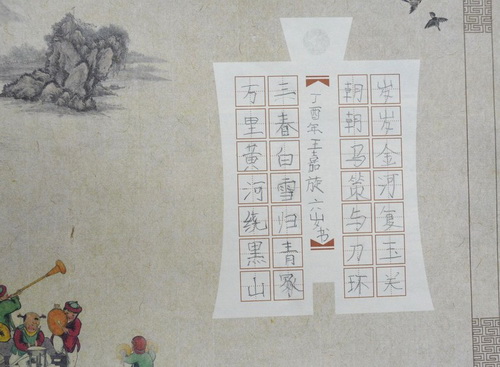 岁岁金河复玉关
朝朝马策与刀环
丁酉年王嘉旋六岁书
三春白雪归青冢
万里黄河绕黑山